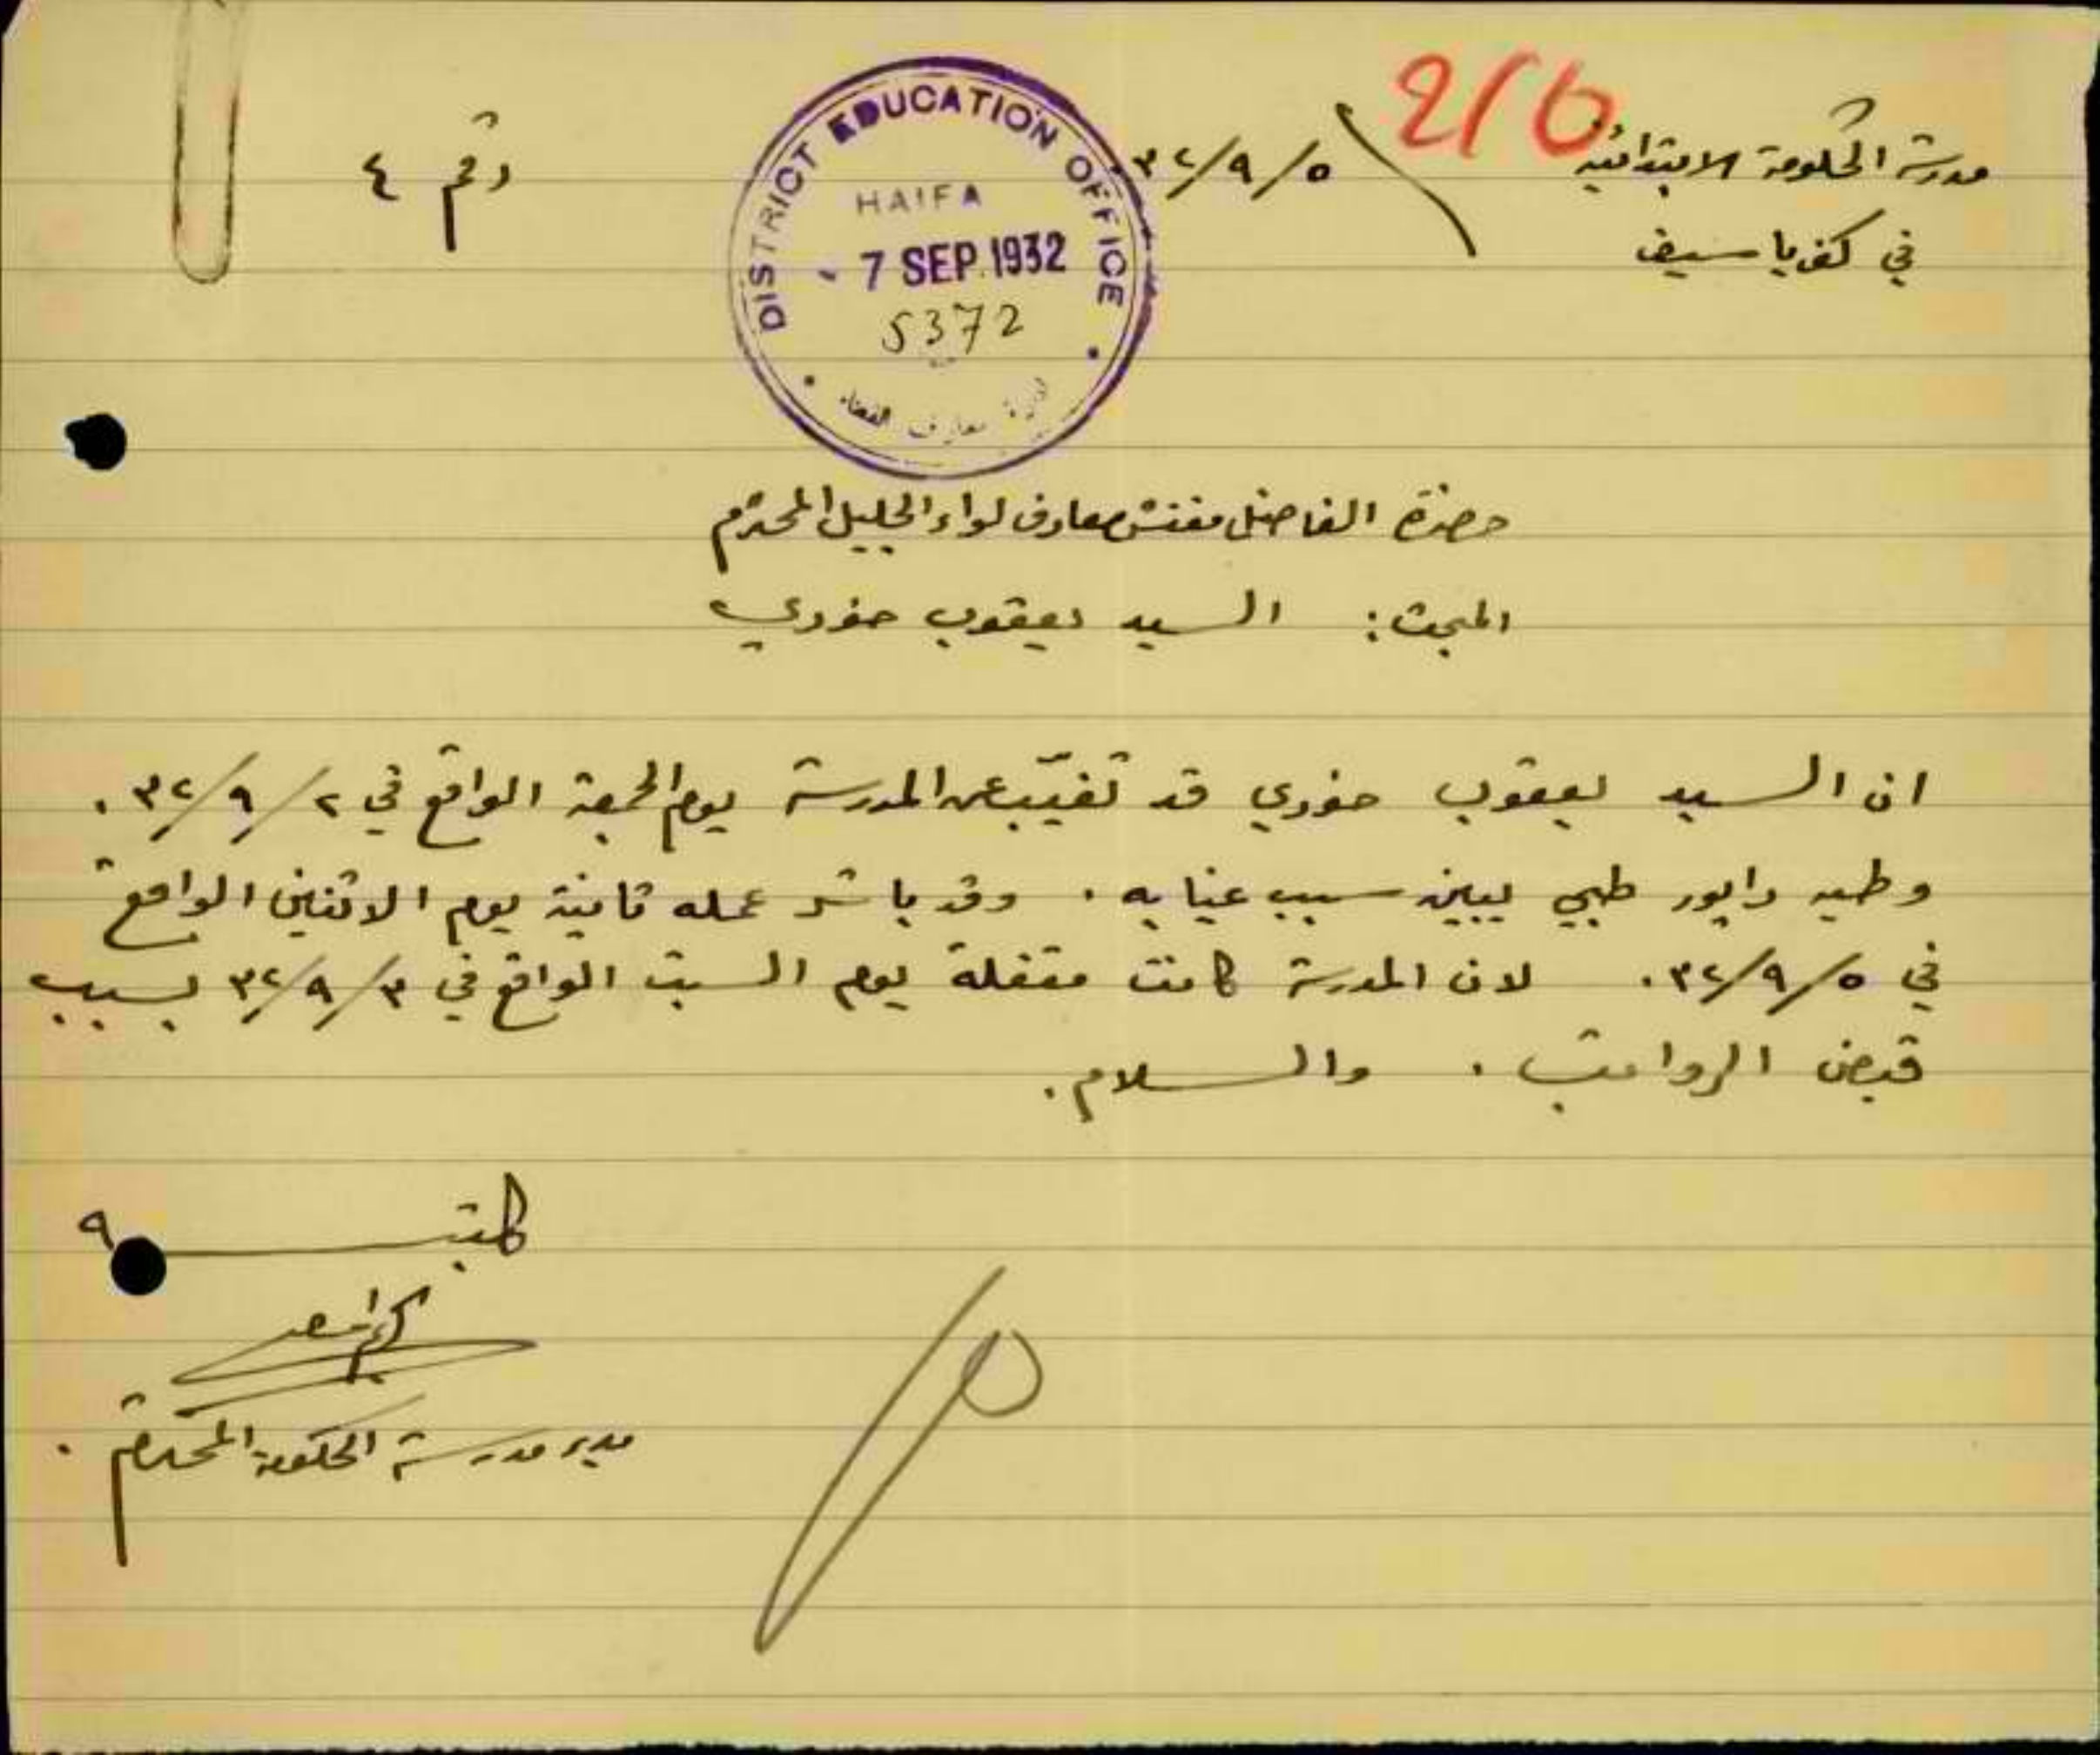 216
مدرسة الحكومة الابتدائية
في كفرياسيف
٣٢/٩/٥
رقم ٤
DISTRICT EDUCATION OFFICE
HAIFA
- 7 SEP 1932
5372
ادارة معارف القضاء
حضرة الفاضل مفتش معارف لواء الجليل المحترم
المبحث: السيد يعقوب خوري
ان السيد يعقوب خوري قد تغيّب عن المدرسة يوم الجمعة الواقع في ٣٢/٩/٢.
وطيه رابور طبي يبين سبب غيابه. وقد باشر عمله ثانية يوم الاثنين الواقع
في ٣٢/٩/٥. لان المدرسة كانت مقفلة يوم السبت الواقع في ٣٢/٩/٣ بسبب
قبض الرواتب. والسلام.
مدير مدرسة الحكومة المحترم.